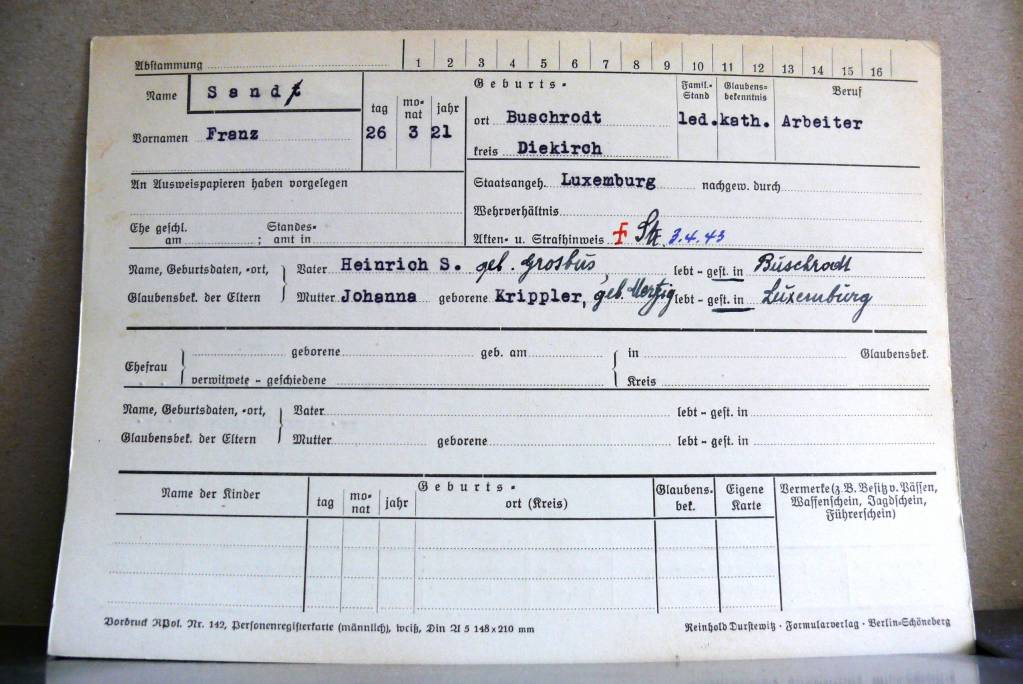 Abstammung 1 2 3 4 5 6 7 8 9 10 11 12 13 14 15 16
Name Sendt
Geburts-
Famil.-Stand Glaubens-bekenntnis Beruf
tag mo-nat jahr
Vornamen Franz 26 3 21
ort Buschrodt led. kath. Arbeiter
kreis Diekirch
An Ausweispapieren haben vorgelegen
Staatsangeh. Luxemburg nachgew. durch
Wehrverhältnis
Ehe geschl. am ; Standes-amt in
Akten- u. Strafhinweis 3.4.43
Name, Geburtsdaten, -ort, Vater Heinrich S. geb. Grosbus, lebt - gest. in Buschrodt
Glaubensbek. der Eltern Mutter Johanna geborene Krippler, geb. Merzig lebt - gest. in Luxemburg
Ehefrau geborene geb. am in Glaubensbek.
verwitwete - geschiedene Kreis
Name, Geburtsdaten, -ort, Vater lebt - gest. in
Glaubensbek. der Eltern Mutter geborene lebt - gest. in
Name der Kinder
Geburts-
tag mo-nat jahr ort (Kreis)
Glaubens-bek.
Eigene Karte
Vermerke (z. B. Besitz v. Pässen,
Waffenschein, Jagdschein,
Führerschein)
Vordruck RPol. Nr. 142, Personenregisterkarte (männlich), weiß, Din A 5 148 x 210 mm
Reinhold Durstewitz · Formularverlag · Berlin-Schöneberg